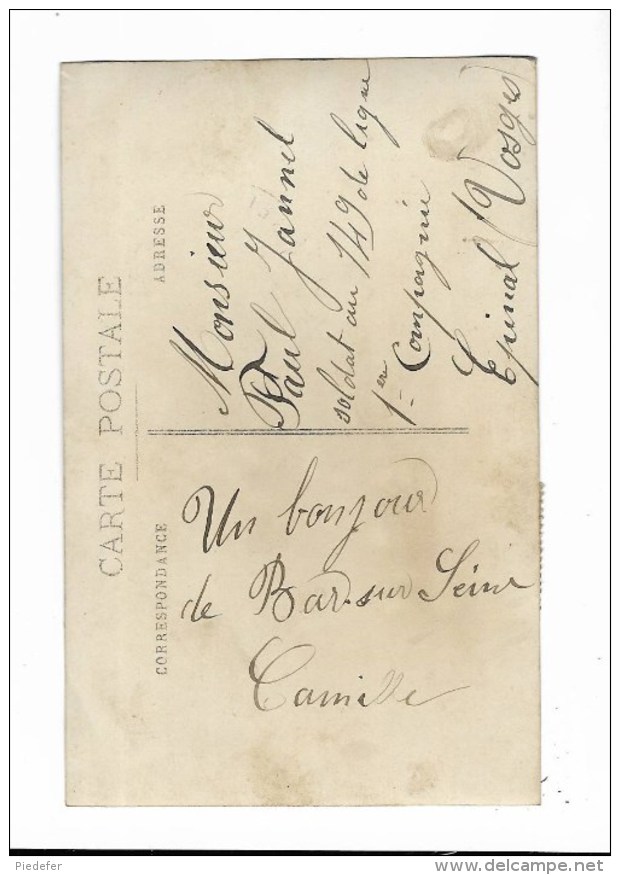 CARTE POSTALE
CORRESPONDANCE
ADRESSE
Un bonjour
de Bar-sur Seine
Camille
Monsieur
Paul Jannel
soldat au 149 de ligne
1ère Compagnie
Epinal (Vosges)
Piedefer
www.delcampe.net